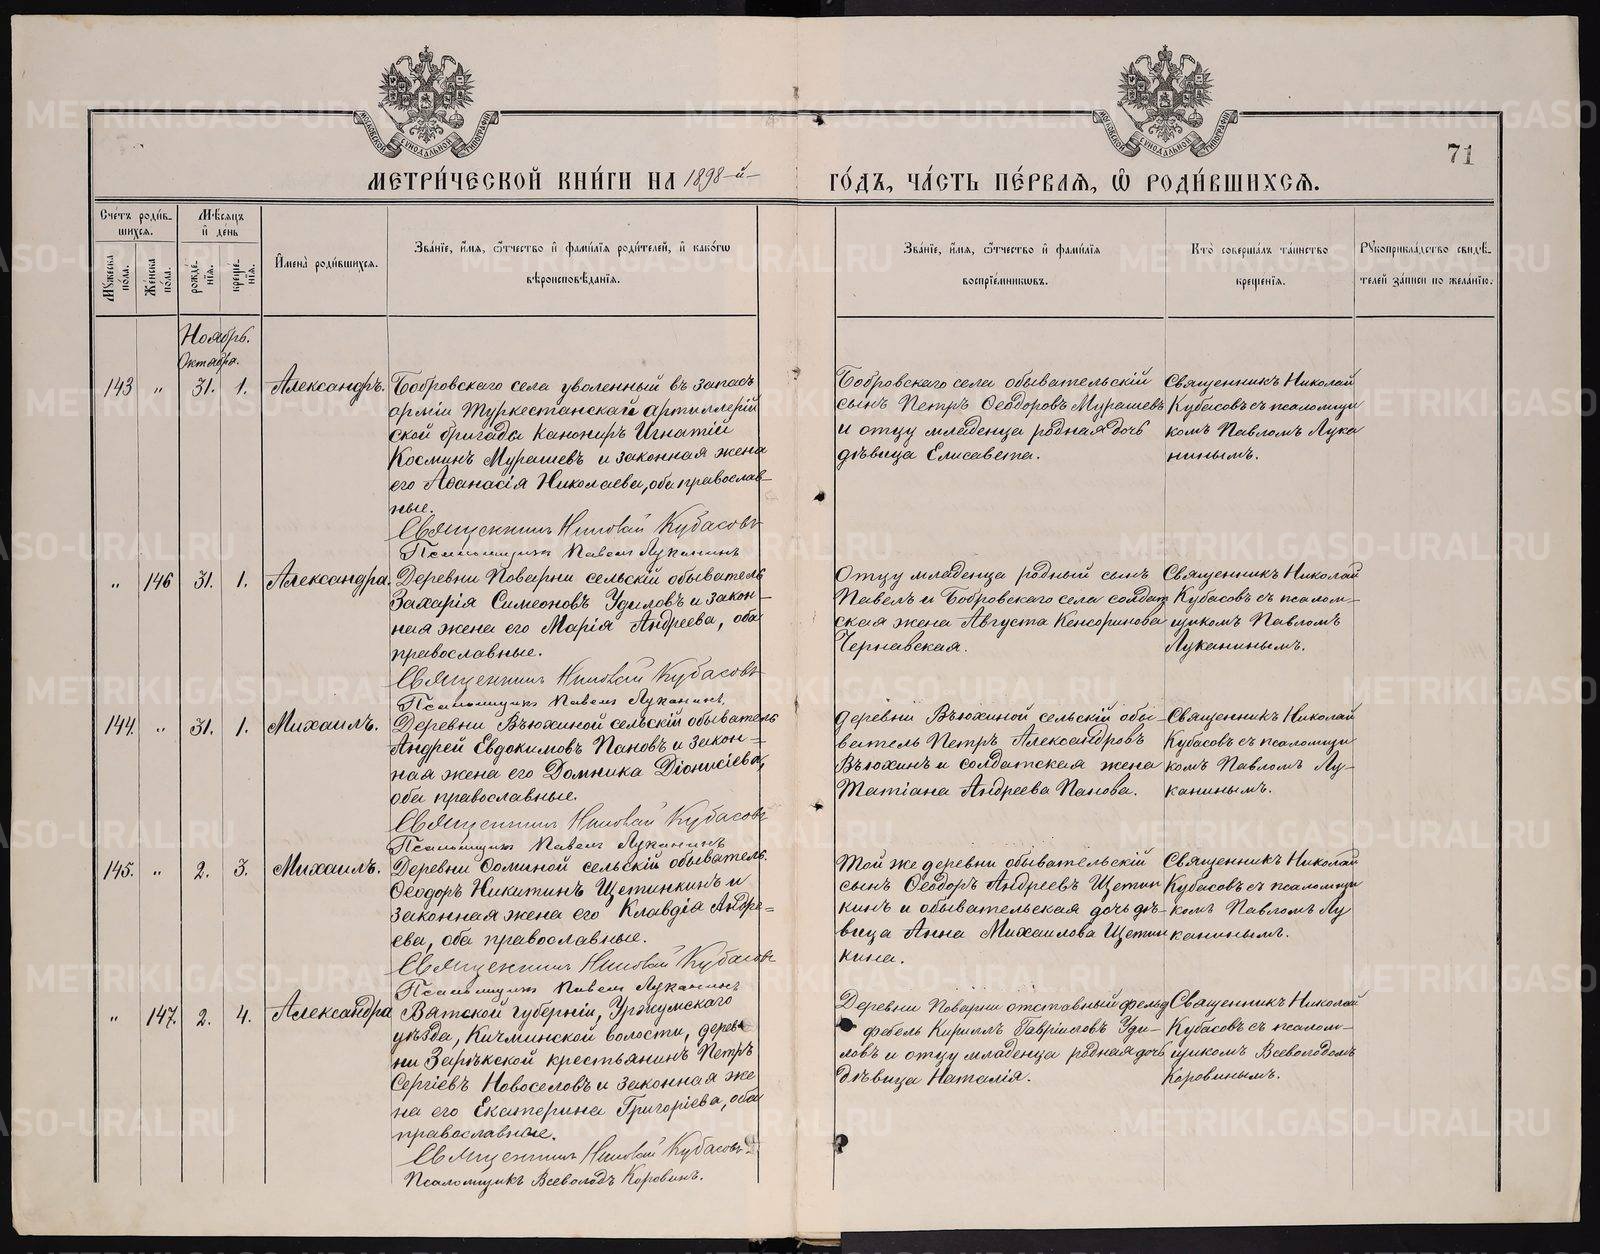 71
МЕТРИ́ЧЕСКОЙ КНИ́ГИ НА 1898-й- ГО́ДЪ, ЧА́СТЬ ПЕ́РВАЯ, Ѡ РОДИ́ВШИХСЯ.
Сче́тъ роди́в-
шихся.
Мꙋжеска по́ла.
Же́нска по́ла.
Мѣ́сяцъ
и де́нь
рожде́-
нїя.
креще́-
нїя.
И́мена роди́вшихся.
Зва́нїе, и́мя, ѻ́тчество и фами́лїя роди́телей, и како́гѡ
вѣроисповѣ́данїя.
Зва́нїе, и́мя, ѻ́тчество и фами́лїя
воспрїе́мникѡвъ.
Кто̀ соверша́лъ та́инство
креще́нїя.
Рꙋкоприкла́дство свидѣ́-
телей за́писи по жела́нїю.
Ноябрь.
Октября.
143 " 31. 1. Александръ.
Бобровскаго села уволенный въ запасъ
арміи Туркестанской артиллерій
ской бригады канониръ Игнатій
Косминъ Мурашевъ и законная жена
его Аѳанасія Николаева, оба православ-
ные.
Священникъ Николай Кубасовъ
Псаломщикъ Павелъ Луканинъ
Бобровскаго села обывательскій
сынъ Петръ Ѳеодоровъ Мурашевъ
и отцу младенца родная дочь
дѣвица Елисавета.
Священникъ Николай
Кубасовъ съ псаломщи
комъ Павломъ Лука
нинымъ.
" 146 31. 1. Александра.
Деревни Поварни сельскій обыватель
Захарія Симеоновъ Удиловъ и закон-
ная жена его Марія Андреева, оба
православные.
Священникъ Николай Кубасовъ
Псаломщикъ Павелъ Луканинъ
Отцу младенца родный сынъ
Павелъ и Бобровскаго села солдат
ская жена Августа Кенсоринова
Чернавская.
Священникъ Николай
Кубасовъ съ псалом-
щикомъ Павломъ
Луканинымъ.
144. " 31. 1. Михаилъ.
Деревни Вьюхиной сельскій обыватель
Андрей Евдокимовъ Пановъ и закон-
ная жена его Домника Діонисіева,
оба православные.
Священникъ Николай Кубасовъ
Псаломщикъ Павелъ Луканинъ
Деревни Вьюхиной сельскій обы-
ватель Петръ Александровъ
Вьюхинъ и солдатская жена
Татіана Андреева Панова.
Священникъ Николай
Кубасовъ съ псаломщи
комъ Павломъ Лу-
канинымъ.
145. " 2. 3. Михаилъ.
Деревни Ѳоминой сельскій обыватель
Ѳеодоръ Никитинъ Щетинкинъ и
законная жена его Клавдія Андре-
ева, оба православные.
Священникъ Николай Кубасовъ
Псаломщикъ Павелъ Луканинъ
Той же деревни обывательскій
сынъ Ѳеодоръ Андреевъ Щетин
кинъ и обывательская дочь дѣ-
вица Анна Михаилова Щетин
кина.
Священникъ Николай
Кубасовъ съ псаломщи
комъ Павломъ Лу
канинымъ.
" 147. 2. 4. Александра
Вятской губерніи, Уржумскаго
уѣзда, Кичминской волости, дерев
ни Зарѣкской крестьянинъ Петръ
Сергіевъ Новоселовъ и законная же
на его Екатерина Григоріева, оба
православные.
Священникъ Николай Кубасовъ
Псаломщикъ Всеволодъ Коровинъ.
Деревни Поварни отставный фельд
фебель Кириллъ Гавріиловъ Уди-
ловъ и отцу младенца родная дочь
дѣвица Наталія.
Священникъ Николай
Кубасовъ съ псалом-
щикомъ Всеволодомъ
Коровинымъ.